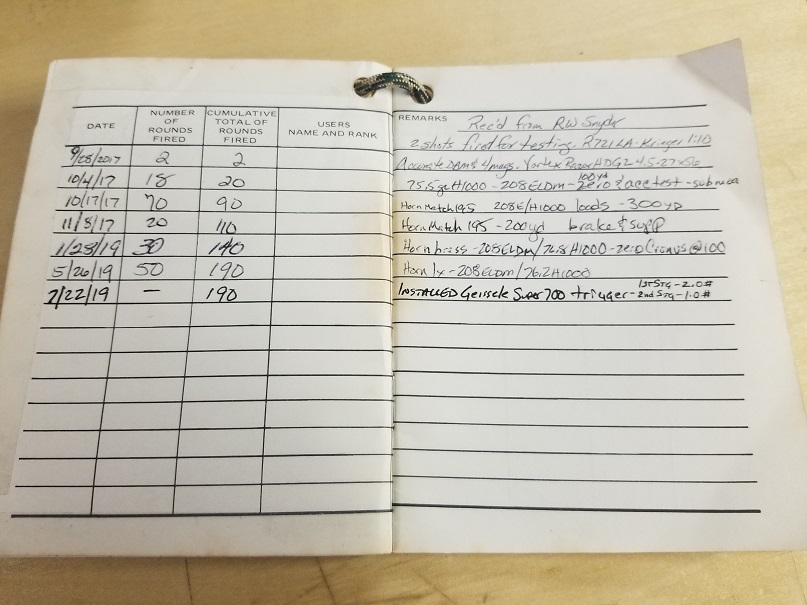 DATE NUMBER OF ROUNDS FIRED CUMULATIVE TOTAL OF ROUNDS FIRED USERS NAME AND RANK REMARKS Rec'd from RW Snyder
2 shots fired for testing. R721 LA - Krieger 1:10
9/28/2017 2 2 Accurate DBM & 4 mags. Vortex Razor HD G2 4.5-27x56
10/4/17 18 20 75.5gr H1000 - 208ELDM - 100yd zero & acc test - sub
10/17/17 70 90 Horn Match 195 208E/H1000 loads - 300yd
11/3/17 20 110 Horn Match 195 - 200yd brake & supp
1/23/19 30 140 Horn brass - 208ELDM/76.8H1000 - zero Cronus @100
5/26/19 50 190 Horn 1x - 208ELDM/76.2H1000
7/22/19 — 190 INSTALLED Geissele Super 700 trigger - 1ST STG - 2.0# 2nd STG - 1.0#